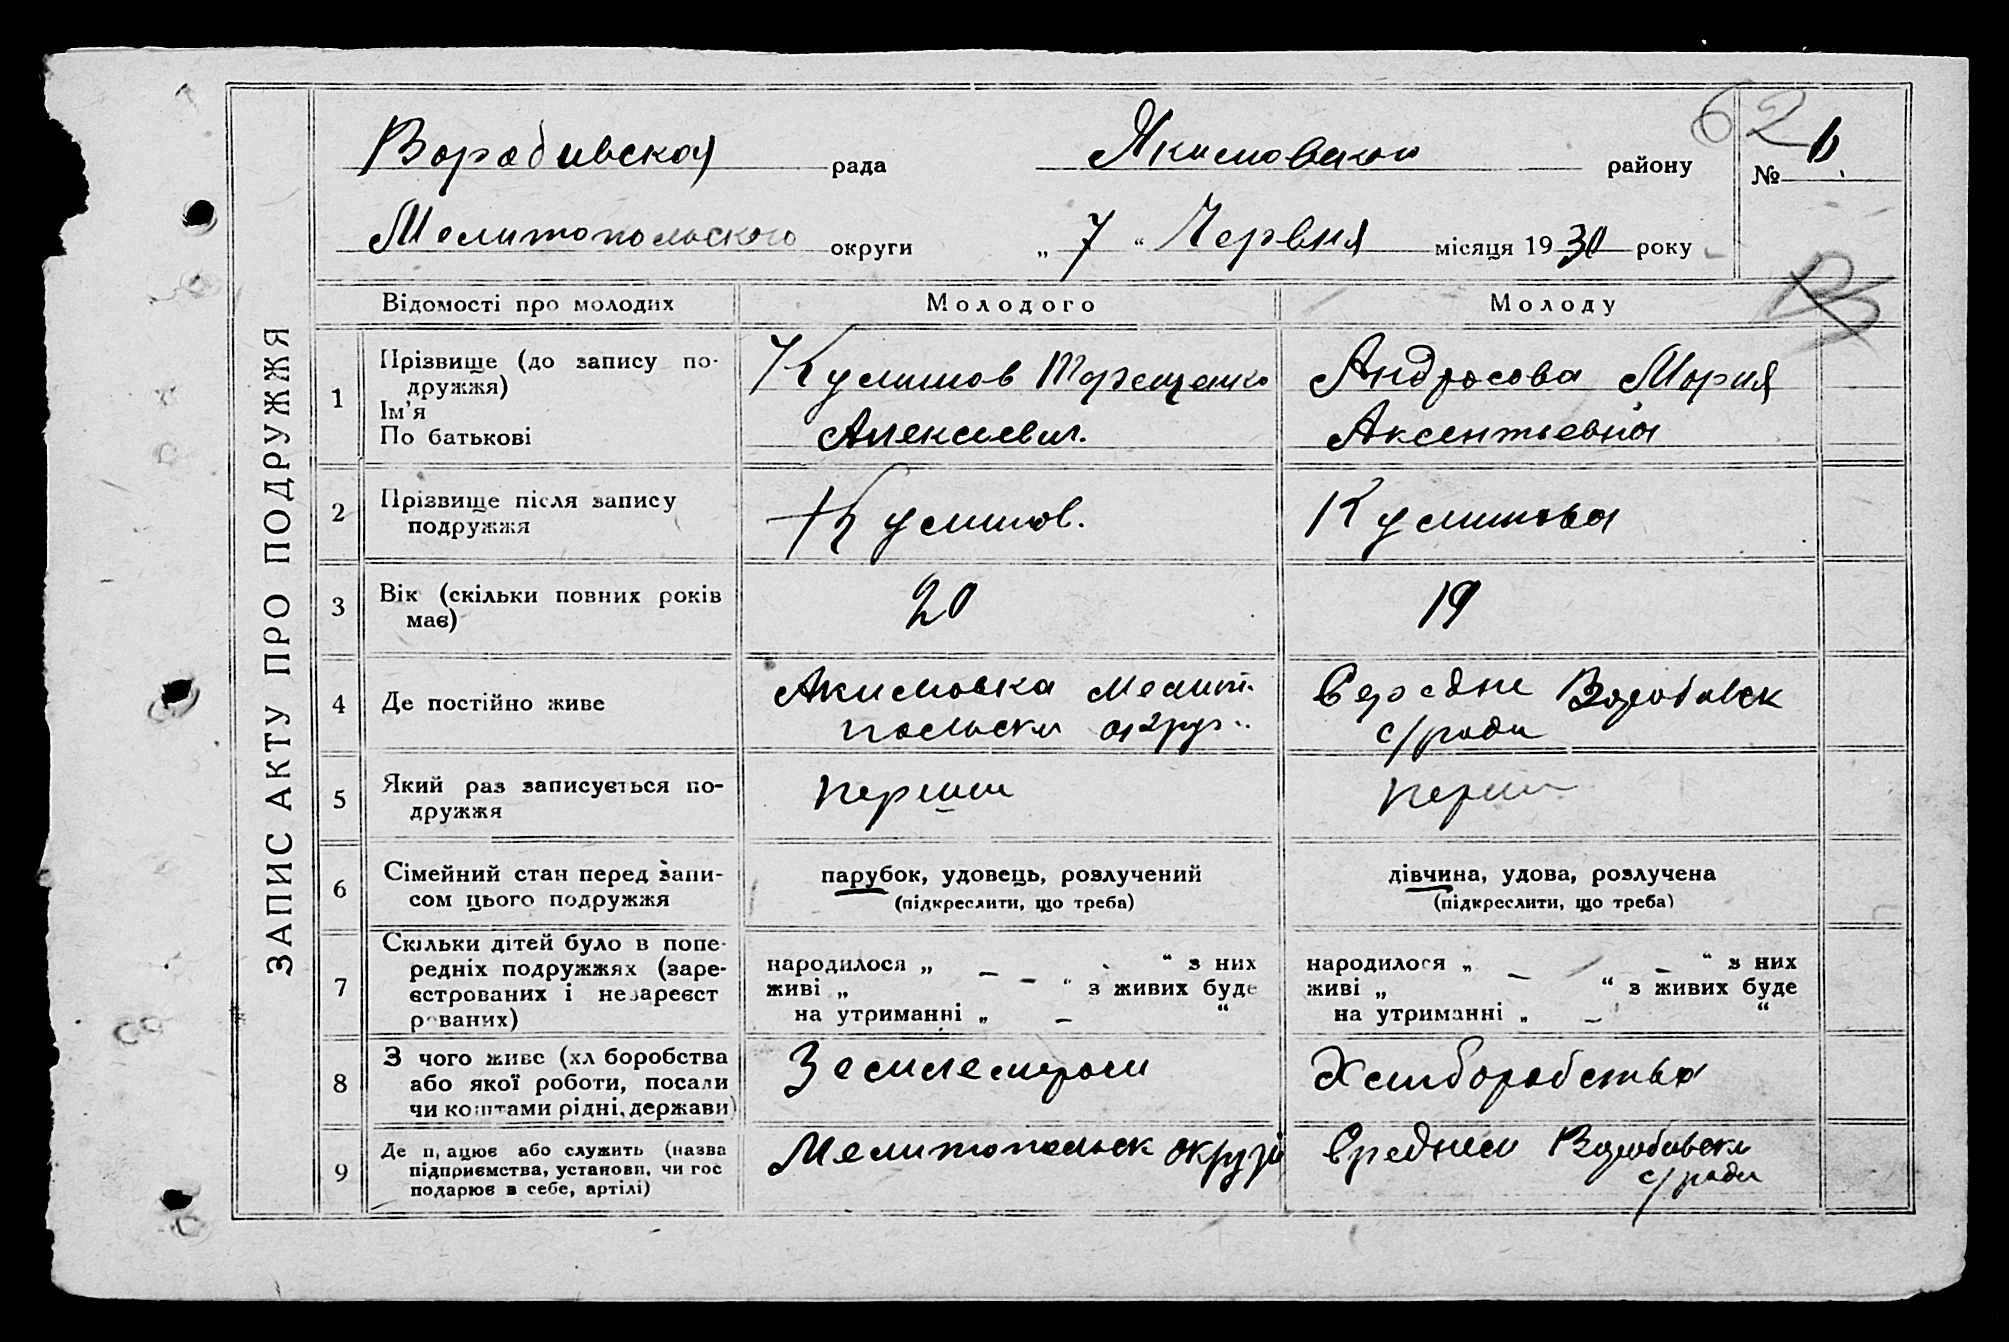 ЗАПИС АКТУ ПРО ПОДРУЖЖЯ
62
Воробивская рада Якимовского району № 6.
Мелитопольского округи „ 7 “ Червня місяця 1930 року
Відомості про молодих Молодого Молоду
1 Прізвище (до запису по-
дружжя)
Ім'я
По батькові
Андросова Мария
Алексиевич. Аксентьевна
2 Прізвище після запису
подружжя
3 Вік (скільки повних років
має)
20 19
4 Де постійно живе
Акимовка Мелит.
польски округ..
Середне Воробивск
с/ради
5 Який раз записується по-
дружжя
перший перши
6 Сімейний стан перед запи-
сом цього подружжя
парубок, удовець, розлучений
(підкреслити, що треба)
дівчина, удова, розлучена
(підкреслити, що треба)
7 Скільки дітей було в попе-
редніх подружжях (заре-
єстрованих і незареєст
рованих)
народилося „ — “ з них
живі „ — “ з живих буде
на утриманні „ — “
народилося „ — “ з них
живі „ — “ з живих буде
на утриманні „ — “
8 З чого живе (хл боробства
або якої роботи, посади
чи коштами рідні, держави)
Хлиборобства
9 Де працює або служить (назва
підприємства, установи, чи гос
подарює в себе, артілі)
Мелитопольск округи
Среднем Воробивски
с/ради